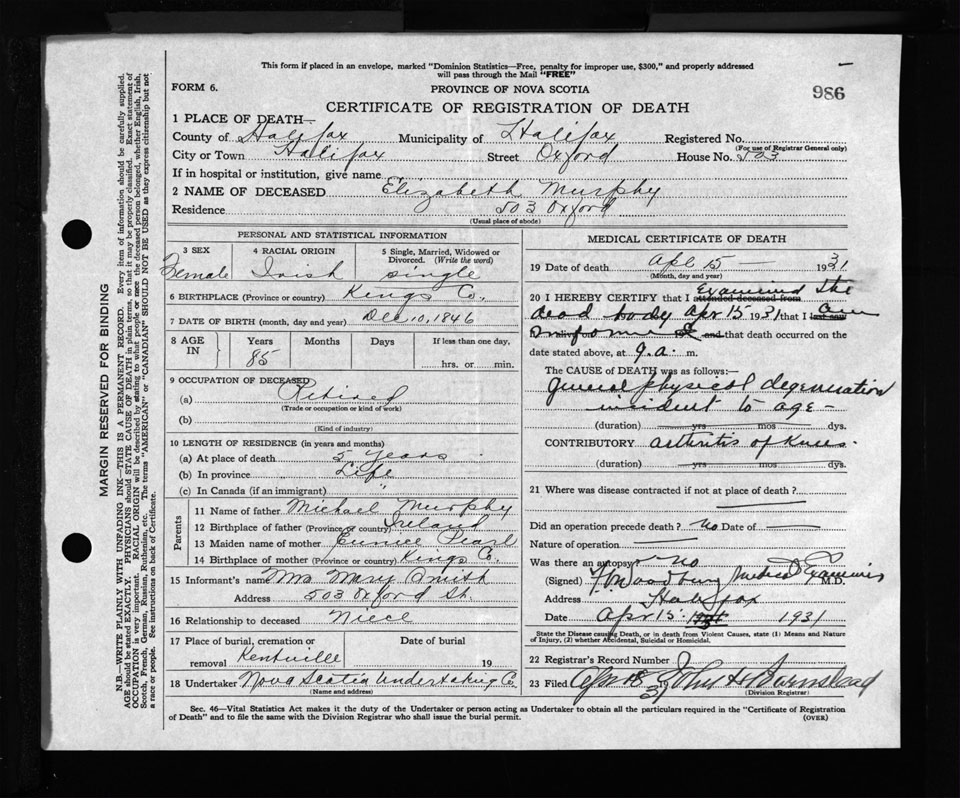 This form if placed in an envelope, marked "Dominion Statistics—Free, penalty for improper use, $300," and properly addressed
will pass through the Mail "FREE"
FORM 6.
PROVINCE OF NOVA SCOTIA
986
CERTIFICATE OF REGISTRATION OF DEATH
1 PLACE OF DEATH—
County of Halifax Municipality of Halifax Registered No.
(For use of Registrar General only)
City or Town Halifax Street Oxford House No. 503
If in hospital or institution, give name
2 NAME OF DECEASED Elizabeth Murphy
Residence 503 Oxford
(Usual place of abode)
PERSONAL AND STATISTICAL INFORMATION
3 SEX 4 RACIAL ORIGIN 5 Single, Married, Widowed or
Divorced. (Write the word)
Female Irish single
6 BIRTHPLACE (Province or country) Kings Co.
7 DATE OF BIRTH (month, day and year) Dec 10, 1846
8 AGE IN Years Months Days If less than one day,
85 hrs. or min.
9 OCCUPATION OF DECEASED
(a) Retired
(Trade or occupation or kind of work)
(b)
(Kind of industry)
10 LENGTH OF RESIDENCE (in years and months)
(a) At place of death 5 years
(b) In province Life
(c) In Canada (if an immigrant) "
Parents
11 Name of father Michael Murphy
12 Birthplace of father (Province or country) Ireland
13 Maiden name of mother Eunice Pearl
14 Birthplace of mother (Province or country) Kings Co.
15 Informant's name Mrs Mary Smith
Address 503 Oxford St.
16 Relationship to deceased Niece
17 Place of burial, cremation or Date of burial
removal Kentville 19
18 Undertaker Nova Scotia Undertaking Co.
(Name and address)
MEDICAL CERTIFICATE OF DEATH
19 Date of death Apl 15 — 1931
(Month, day and year)
20 I HEREBY CERTIFY that I attended deceased from Examined the
dead body Apr 15 1931 that I last saw
alive on and that death occurred on the
date stated above, at 9.a. m.
The CAUSE OF DEATH was as follows:—
general physical degeneration
incident to age —
(duration) yrs mos dys.
CONTRIBUTORY arthritis of Knees.
(duration) yrs mos dys.
21 Where was disease contracted if not at place of death?
Did an operation precede death? no Date of
Nature of operation
Was there an autopsy? no
(Signed) Woodbury Medical Examiner M.D.
Address Halifax
Date Apr 15 1931
State the Disease causing Death, or in death from Violent Causes, state (1) Means and Nature
of Injury, (2) whether Accidental, Suicidal or Homicidal.
22 Registrar's Record Number
23 Filed John H Barnstead
(Division Registrar)
Sec. 46—Vital Statistics Act makes it the duty of the Undertaker or person acting as Undertaker to obtain all the particulars required in the "Certificate of Registration
of Death" and to file the same with the Division Registrar who shall issue the burial permit. (OVER)
MARGIN RESERVED FOR BINDING
N.B.—WRITE PLAINLY WITH UNFADING INK—THIS IS A PERMANENT RECORD. Every item of information should be carefully supplied.
AGE should be stated EXACTLY. PHYSICIANS should STATE CAUSE OF DEATH in plain terms, so that it may be properly classified. Exact statement of
OCCUPATION is very important. RACIAL ORIGIN will be described by stating to what people or race the deceased person belonged, whether English, Irish,
Scotch, French, German, Russian, Ruthenian, etc. The terms "AMERICAN" or "CANADIAN" SHOULD NOT BE USED as they express citizenship but not
a race or people. See instructions on back of Certificate.